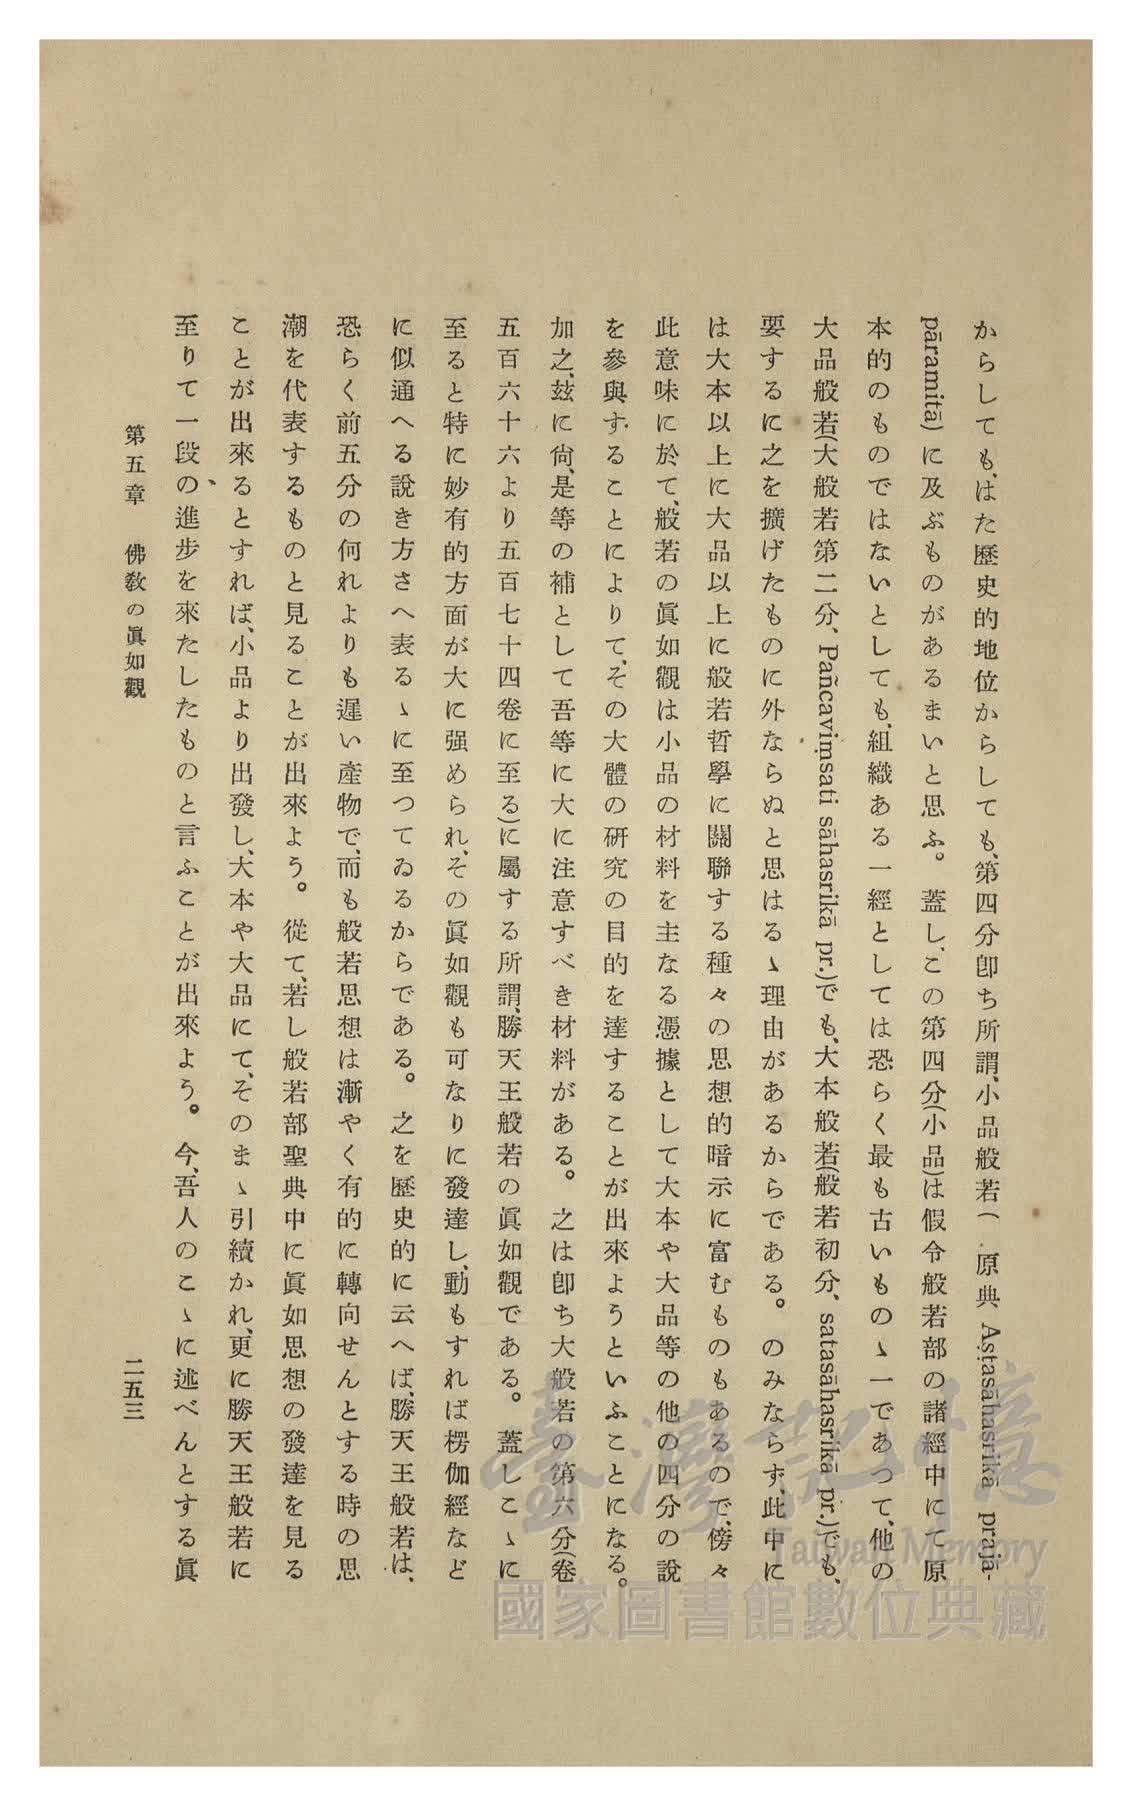 からしても、はた歷史的地位からしても、第四分卽ち所謂、小品般若(原典 Aṣṭasāhasrikā prajā-
pāramitā)に及ぶものがあるまいと思ふ。蓋し、この第四分(小品)は假令般若部の諸經中にて原
本的のものではないとしても、組織ある一經としては恐らく最も古いものゝ一であつて、他の
大品般若(大般若第二分、Pañcaviṃsati sāhasrikā pr.)でも、大本般若(般若初分、satasāhasrikā pr.)でも、
要するに之を擴げたものに外ならぬと思はるゝ理由があるからである。のみならず、此中に
は大本以上に大品以上に般若哲學に關聯する種々の思想的暗示に富むものもあるので、傍々
此意味に於て、般若の眞如觀は小品の材料を主なる憑據として大本や大品等の他の四分の說
を參與することによりて、その大體の硏究の目的を達することが出來ようといふことになる。
加之、玆に尙、是等の補として吾等に大に注意すべき材料がある。之は卽ち大般若の第六分(卷
五百六十六より五百七十四卷に至る)に屬する所謂、勝天王般若の眞如觀である。蓋しこゝに
至ると特に妙有的方面が大に强められ、その眞如觀も可なりに發達し、動もすれば楞伽經など
に似通へる說き方さへ表るゝに至つてゐるからである。之を歷史的に云へば、勝天王般若は、
恐らく前五分の何れよりも遲い產物で、而も般若思想は漸やく有的に轉向せんとする時の思
潮を代表するものと見ることが出來よう。從て、若し般若部聖典中に眞如思想の發達を見る
ことが出來るとすれば、小品より出發し、大本や大品にて、そのまゝ引續かれ、更に勝天王般若に
至りて一段の進步を來たしたものと言ふことが出來よう。今、吾人のこゝに述べんとする眞
第五章 佛敎の眞如觀 二五三
臺灣記憶
Taiwan Memory
國家圖書館數位典藏